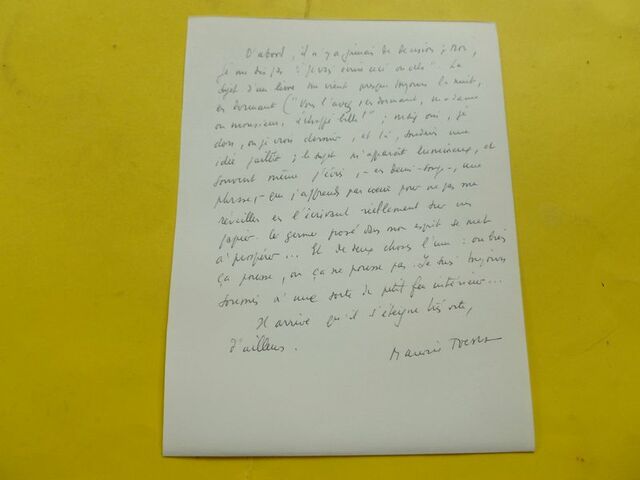 D'abord, il n'y a jamais de décision ; non,
je ne dis pas "je vais écrire ceci ou cela". Le
sujet d'un livre me vient presque toujours la nuit,
en dormant ("Vous l'avez en dormant, madame
ou monsieur, belle!" ; mais oui, je
dors, ou je vais dormir, et là, soudain une
idée jaillit ; le sujet m'apparaît lumineux, et
souvent même j'écris, - en demi-songe -, une
phrase, - que j'apprends par cœur pour ne pas me
réveiller en l'écrivant réellement sur un
papier. Le germe posé dans mon esprit se met
à prospérer... Et de deux choses l'une : ou bien
ça pousse, ou ça ne pousse pas. Je suis toujours
soumis à une sorte de petit feu intérieur...
Il arrive qu'il s'éteigne très vite,
d'ailleurs.
Maurice Toesca